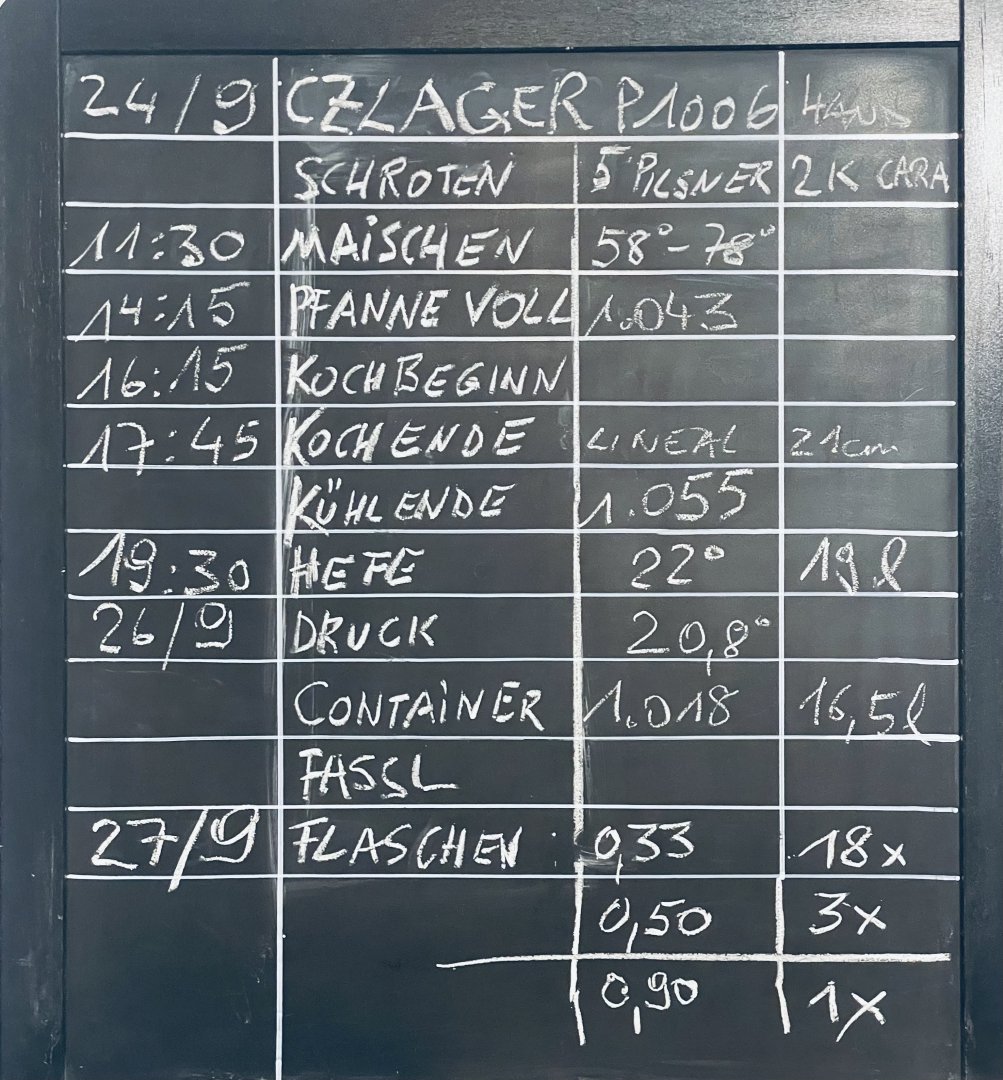 24/9 CZLAGER P1006 HAND
SCHROTEN 5 PILSNER 2K CARA
11:30 MAISCHEN 58°-78°
14:15 PFANNE VOLL 1.043
16:15 KOCHBEGINN
17:45 KOCHENDE LINEAL 21cm
KÜHLENDE 1.055
19:30 HEFE 22° 19l
26/9 DRUCK 20,8°
CONTAINER 1.018 16,5l
FASSL
27/9 FLASCHEN 0,33 18x
0,50 3x
0,90 1x